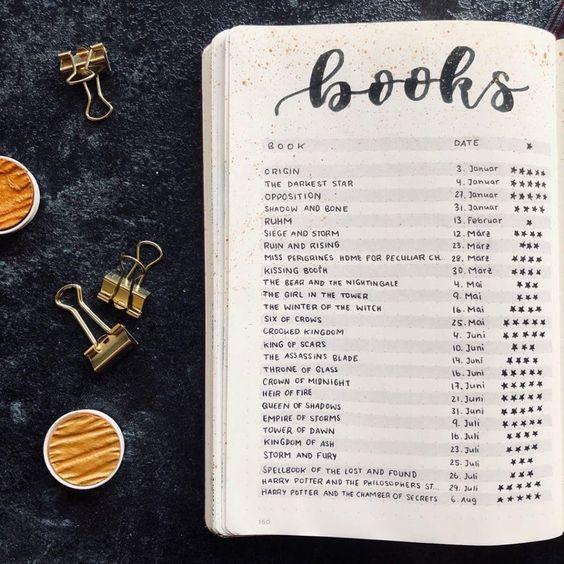 books
BOOK DATE ★
ORIGIN 3. Januar
THE DARKEST STAR 4. Januar
OPPOSITION 27. Januar
SHADOW AND BONE 31. Januar
RUHM 13. Februar
SIEGE AND STORM 12. März
RUIN AND RISING 23. März
MISS PEREGRINES HOME FOR PECULIAR CH... 28. März
KISSING BOOTH 30. März
THE BEAR AND THE NIGHTINGALE 4. Mai
THE GIRL IN THE TOWER 9. Mai
THE WINTER OF THE WITCH 16. Mai
SIX OF CROWS 25. Mai
CROOKED KINGDOM 4. Juni
KING OF SCARS 10. Juni
THE ASSASSINS BLADE 14. Juni
THRONE OF GLASS 16. Juni
CROWN OF MIDNIGHT 17. Juni
HEIR OF FIRE 21. Juni
QUEEN OF SHADOWS 31. Juni
EMPIRE OF STORMS 9. Juli
TOWER OF DAWN 16. Juli
KINGDOM OF ASH 23. Juli
STORM AND FURY 25. Juli
SPELLBOOK OF THE LOST AND FOUND 26. Juli
HARRY POTTER AND THE PHILOSOPHERS ST... 29. Juli
HARRY POTTER AND THE CHAMBER OF SECRETS 6. Aug
160